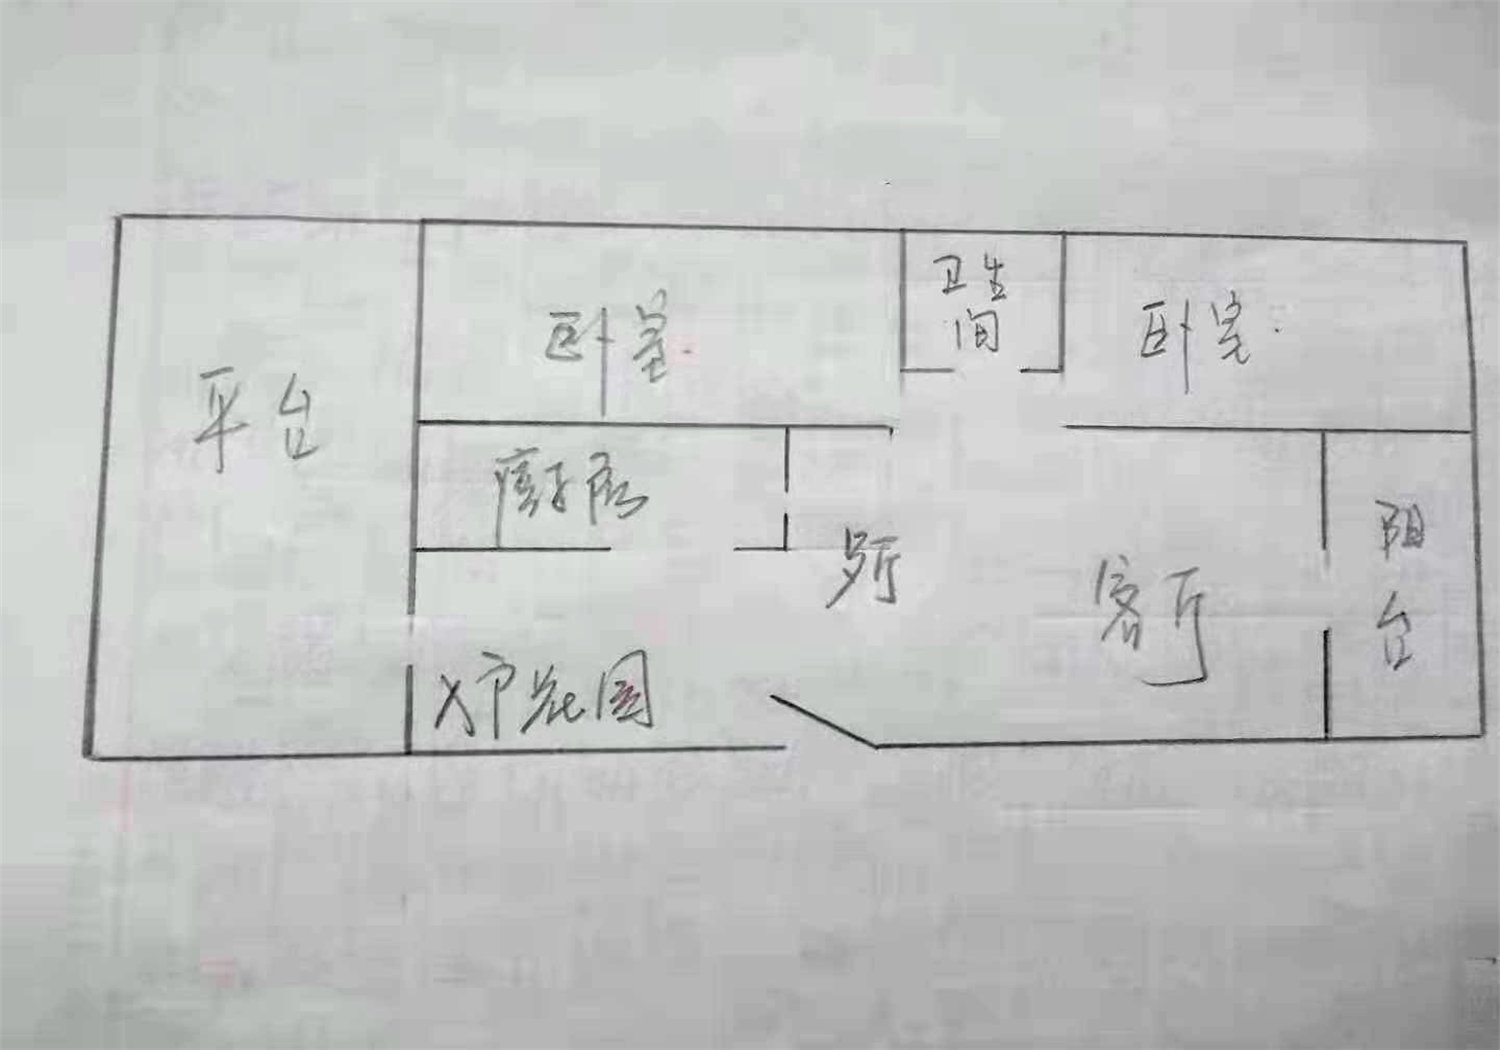 平台
卧室
卫生
间
卧室
厨房
客厅
阳
台
入户花园